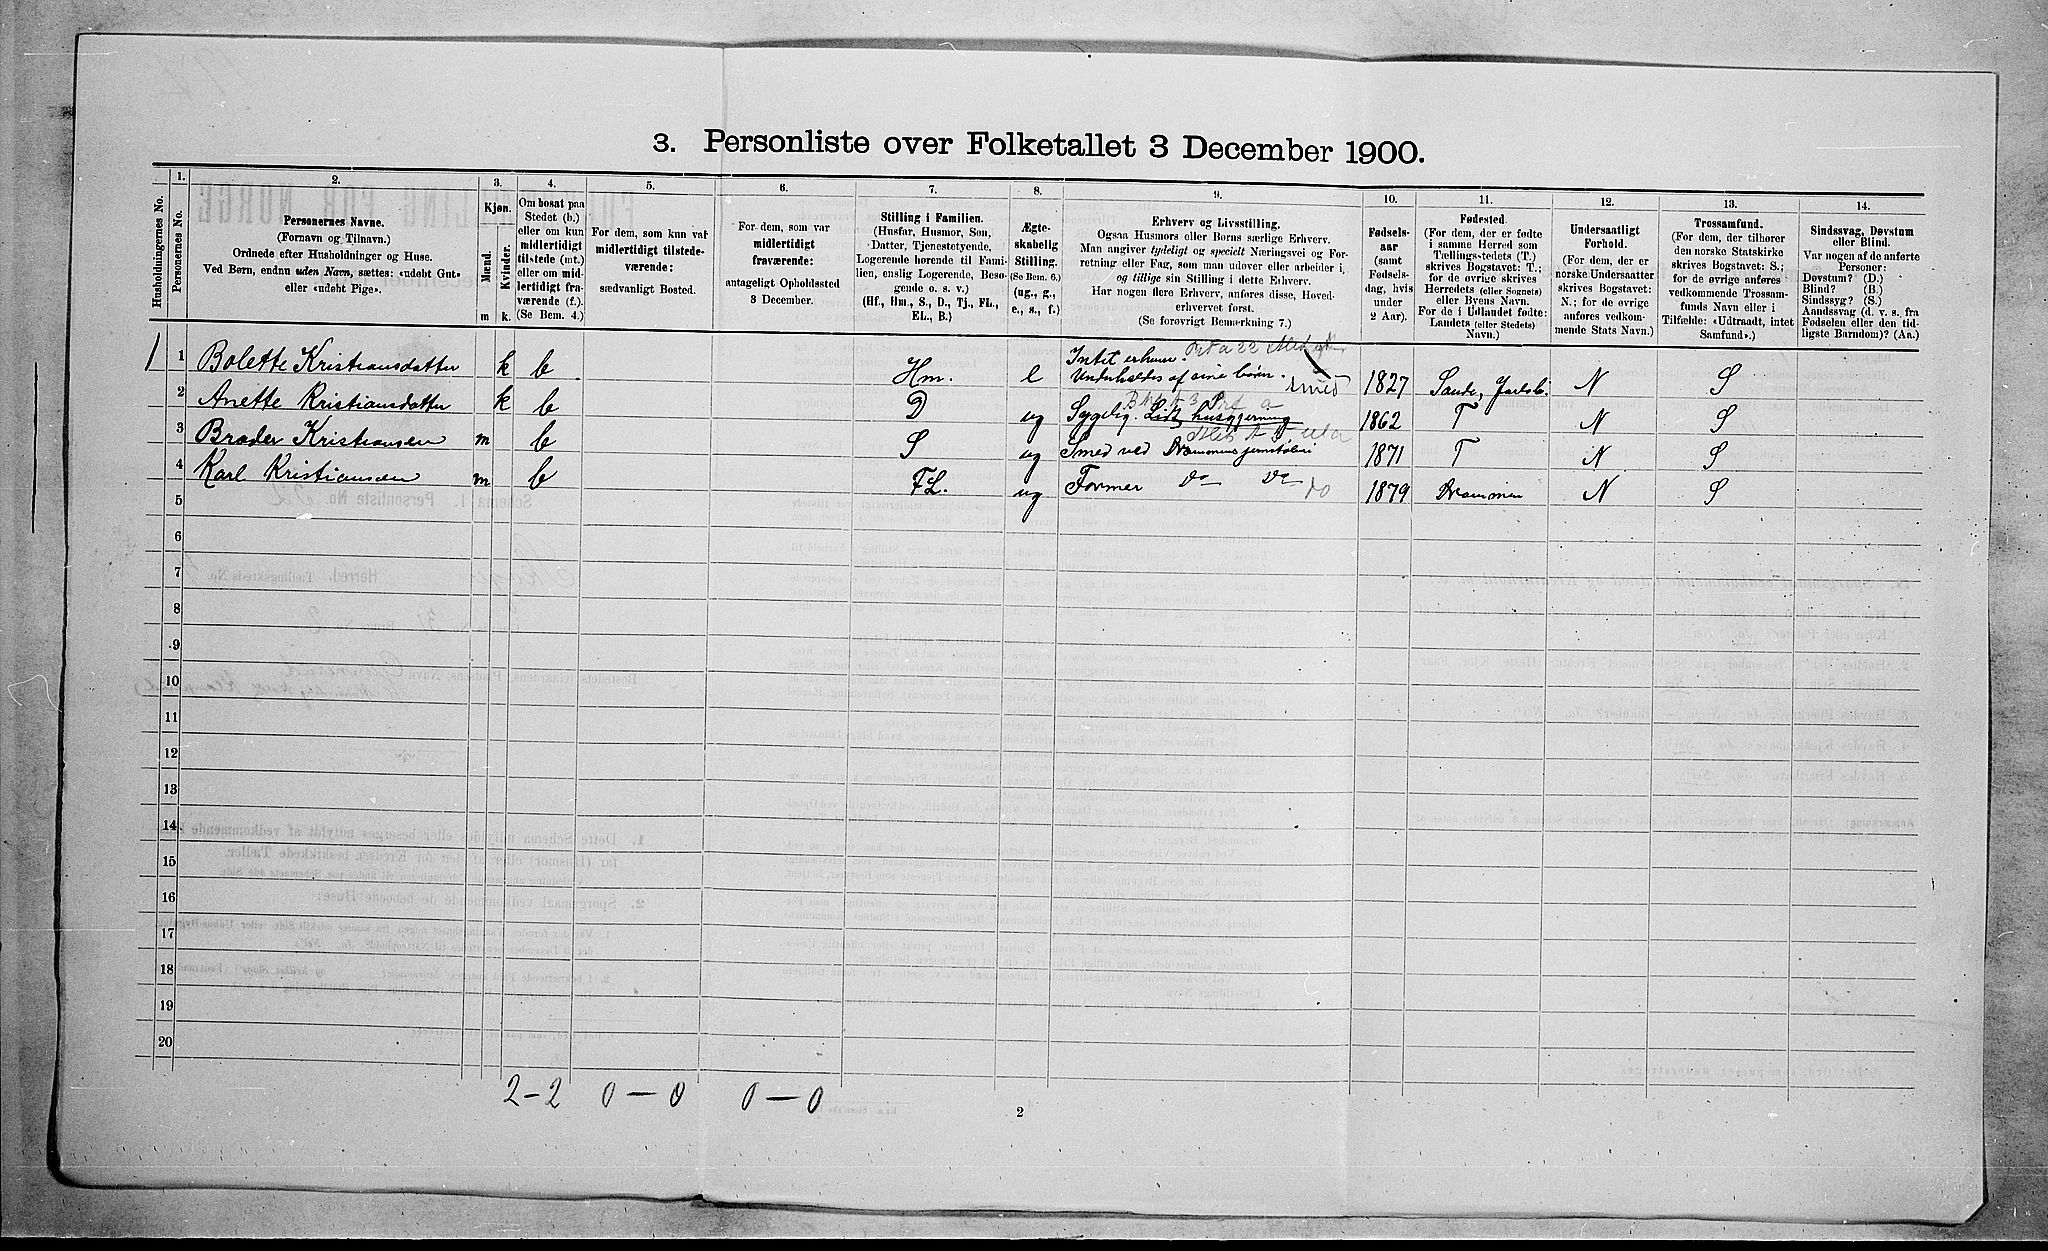 3. Personliste over Folketallet 3 December 1900.
Husholdningernes No.
1.
Personernes No.
2.
Personernes Navne.
(Fornavn og Tilnavn.)
Ordnede efter Husholdninger og Huse.
Ved Børn, endnu uden Navn, sættes: «udøbt Gut»
eller «udøbt Pige».
3.
Kjøn.
Mænd.
Kvinder.
m
k.
4.
Om bosat paa
Stedet (b.)
eller om kun
midlertidigt
tilstede (mt.)
eller om mid-
lertidigt fra-
værende (f.).
(Se Bem. 4.)
5.
For dem, som kun var
midlertidigt tilstede-
værende:
sædvanligt Bosted.
6.
For dem, som var
midlertidigt
fraværende:
antageligt Opholdssted
3 December.
7.
Stilling i Familien.
(Husfar, Husmor, Søn,
Datter, Tjenestetyende,
Logerende hørende til Fami-
lien, enslig Logerende, Besø-
gende o. s. v.)
(Hf., Hm., S., D., Tj., FL.,
EL., B.)
8.
Ægte-
skabelig
Stilling.
(Se Bem. 6.)
(ug., g.,
e., s., f.)
9.
Erhverv og Livsstilling.
Ogsaa Husmors eller Børns særlige Erhverv.
Man angiver tydeligt og specielt Næringsvei og For-
retning eller Fag, som man udøver eller arbeider i,
og tillige sin Stilling i dette Erhverv.
Har nogen flere Erhverv, anføres disse, Hoved-
erhvervet først.
(Se forøvrigt Bemerkning 7.)
10.
Fødsels-
aar
(samt
Fødsels-
dag, hvis
under
2 Aar).
11.
Fødested.
(For dem, der er fødte
i samme Herred som
Tællings-stedets (T.)
skrives Bogstavet: T.;
for de øvrige skrives
Herredets (eller Sognets)
eller Byens Navn.
For de i Udlandet fødte:
Landets (eller Stedets)
Navn.)
12.
Undersaatligt
Forhold.
(For dem, der er
norske Undersaatter
skrives Bogstavet:
N.; for de øvrige
anføres vedkom-
mende Stats Navn.)
13.
Trossamfund.
(For dem, der tilhører
den norske Statskirke
skrives Bogstavet: S.;
for de øvrige anføres
vedkommende Trossam-
funds Navn eller i
Tilfælde: «Udtraadt, intet
Samfund».)
14.
Sindssvag, Døvstum
eller Blind.
Var nogen af de anførte
Personer:
Døvstum? (D.)
Blind? (B.)
Sindssyg? (S.)
Aandssvag (d. v. s. fra
Fødselen eller den tid-
ligste Barndom)? (Aa.)
1 1 Bolette Kristiansdatter k b Hm. e Intet erhverv. Underholdes af sine børn. 1827 Sande, Jarlsb. N S
2 Anette Kristiansdatter k b D ug Sygelig. Lidt husgjerning 1862 T N S
3 Brader Kristiansen m b S ug Smed ved Drammens jernstøberi 1871 T N S
4 Karl Kristiansen m b FL. ug Former do do 1879 Drammen N S
5
6
7
8
9
10
11
12
13
14
15
16
17
18
19
20
2-2 0-0 0-0
2